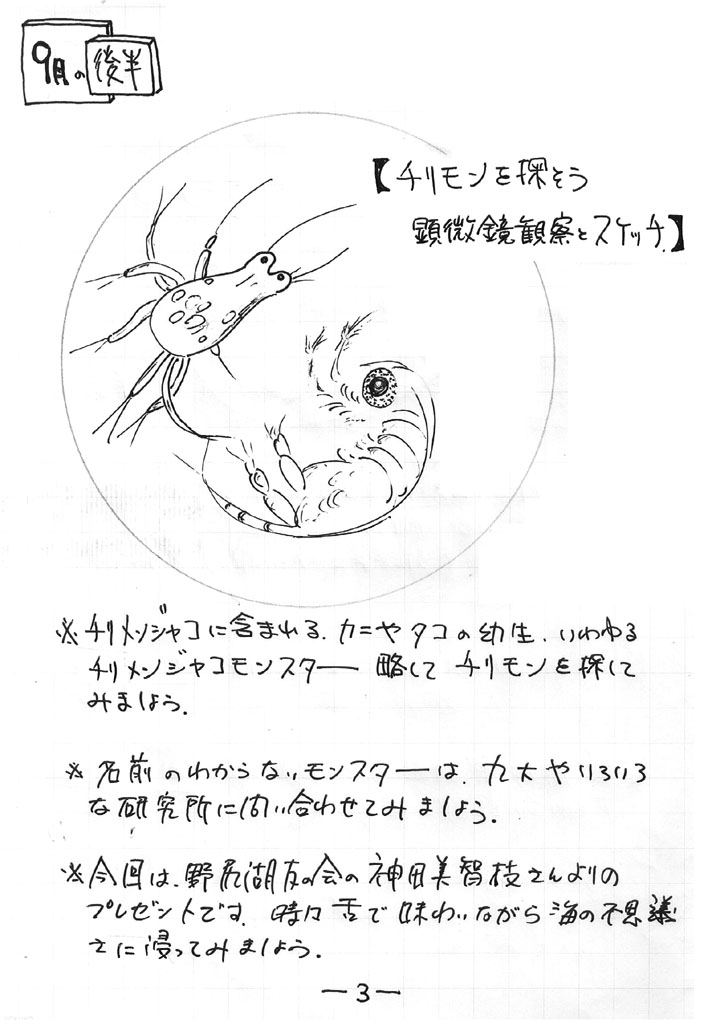 9月の後半
【チリモンを探そう
顕微鏡観察とスケッチ】
※チリメンジャコに含まれる、カニやタコの幼生、いわゆる
チリメンジャコモンスター 略して チリモンを探して
みましょう。
※名前のわからないモンスターは、九大やいろいろ
な研究所に問い合わせてみましょう。
※今回は、野尻湖友の会の神田美智枝さんよりの
プレゼントです。時々舌で味わいながら海の不思議
さに浸ってみましょう。
—3—